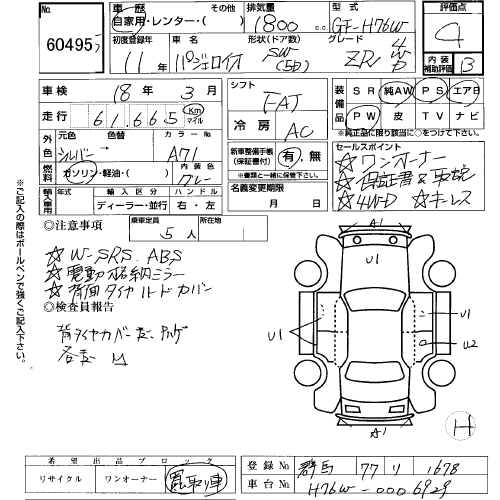 No. 60495
車歴 自家用・レンター・( ) その他
排気量 1800 cc
型式 GF-H76W
評価点 4
初度登録年 11年
車名 パジェロイオ
形状(ドア数) SW (5D)
グレード ZR 4WD
内装補助評価 B
車検 18年 3月
走行 61,665 Km マイル
シフト FAT
冷房 AC
装備品 SR 純AW PS エアB
PW 皮 TV ナビ
※純正品に限り該当に○をつけて下さい
外色 元色 シルバー 色替 カラーNo A71
燃料 ガソリン・軽油・( ) 内装色 グレー
新車整備手帳(保証書付) 有・無
※書類と一緒に保管して下さい。
名義変更期限 月 日
セールスポイント
☆ワンオーナー
☆保証書&車検
☆4WD ☆キーレス
輸入車用 年式 輸入区分 ハンドル
ディーラー・並行 右・左
◎注意事項
乗車定員 5人
所在地
☆W-SRS. ABS
☆電動格納ミラー
☆背面タイヤハードカバー
◎検査員報告
背タイヤカバー
各
※ご記入の際はボールペンで強くご記入下さい。
A1
U1
U1
U1
U2
A1
H
希望出品ブロック
リサイクル ワンオーナー 買取り車
登録No 群馬 77 リ 1678
車台No H76W-0006929